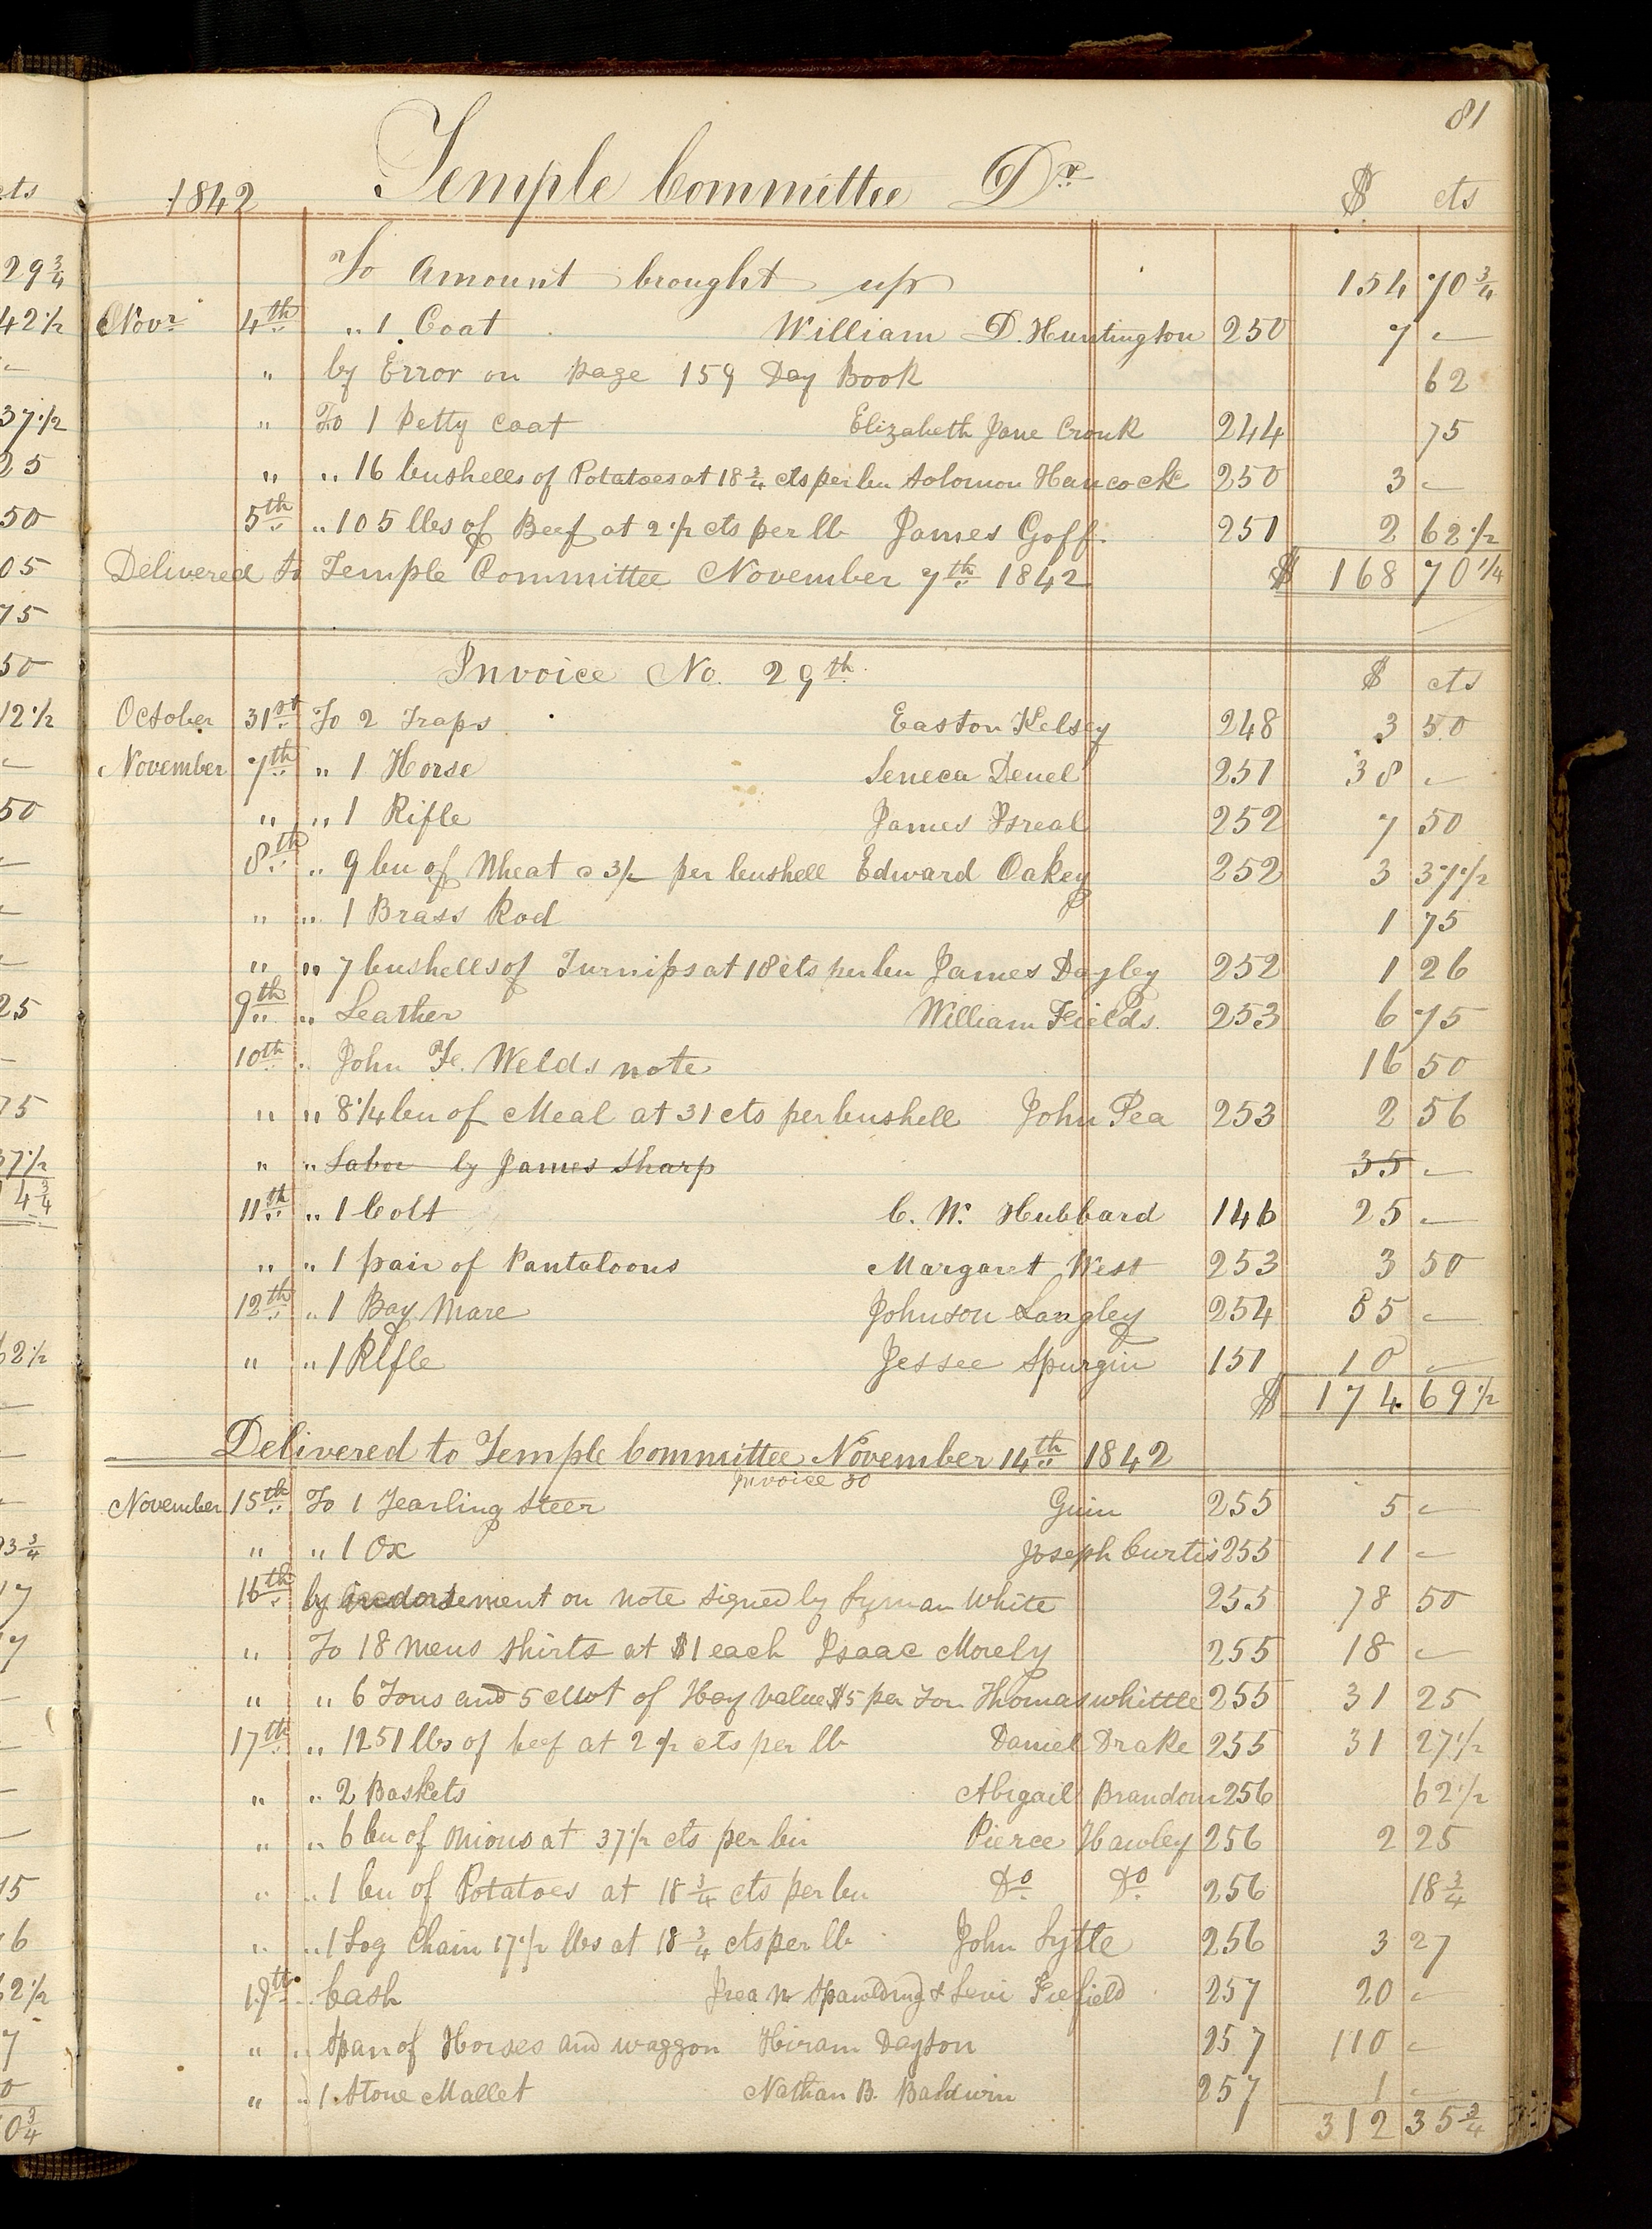 81
1842 Temple Committee Dr. $ cts
To Amount brought up 154 70 3/4
Novr 4th " 1 Coat William D. Huntington 250 7 -
" by Error on page 159 Day Book 62
" To 1 Petty coat Elizabeth Jane Cronk 244 75
" " 16 bushells of Potatoes at 18 3/4 cts per bu Solomon Hancock 250 3 -
5th " 105 lbs of Beef at 2 1/2 cts per lb James Goff. 251 2 62 1/2
Delivered to Temple Committee November 7th 1842 $ 168 70 1/4
Invoice No. 29th $ cts
October 31st To 2 Traps Easton Kelsey 248 3 50
November 7th " 1 Horse Seneca Denel 251 38 -
" " 1 Rifle James Isreal 252 7 50
8th " 9 bu of Wheat @ 3/- per bushell Edward Oakey 252 3 37 1/2
" " 1 Brass Rod 1 75
" " 7 bushells of Turnips at 18 cts per bu James Dayley 252 1 26
9th " Leather William Fields. 253 6 75
10th " John F. Welds note 16 50
" " 8 1/4 bu of Meal at 31 cts per bushell John Pea 253 2 56
" " Labor by James Sharp 35 -
11th " 1 Colt C. W. Hubbard 146 25 -
" " 1 pair of Pantaloons Margaret West 253 3 50
12th " 1 Bay Mare Johnson Langley 254 55 -
" " 1 Rifle Jessee Spurgin 151 10 -
$ 174 69 1/2
Delivered to Temple Committee November 14th 1842
Invoice 30
November 15th To 1 Yearling Steer Guin 255 5 -
" " 1 Ox Joseph Curtis 255 11 -
16th by indorsement on note signed by Lyman White 255 78 50
" To 18 mens shirts at $1 each Isaac Morely 255 18 -
" " 6 Tons and 5 cwt of Hay value $5 per Ton Thomas whittle 255 31 25
17th " 1251 lbs of beef at 2 1/2 cts per lb Daniel Drake 255 31 27 1/2
" " 2 Baskets Abigail Brandom 256 62 1/2
" " 6 bu of onions at 37 1/2 cts per bu Pierce Hawley 256 2 25
" " 1 bu of Potatoes at 18 3/4 cts per bu Do Do 256 18 3/4
" " 1 Log Chain 17 1/2 lbs at 18 3/4 cts per lb John Lytle 256 3 27
19th " Cash Irea N Spawlding & Levi Fiefield 257 20 -
" " Span of Horses and waggon Hiram Dayton 257 110 -
" " 1 Stone Mallet Nathan B. Baldwin 257 1 -
312 35 3/4